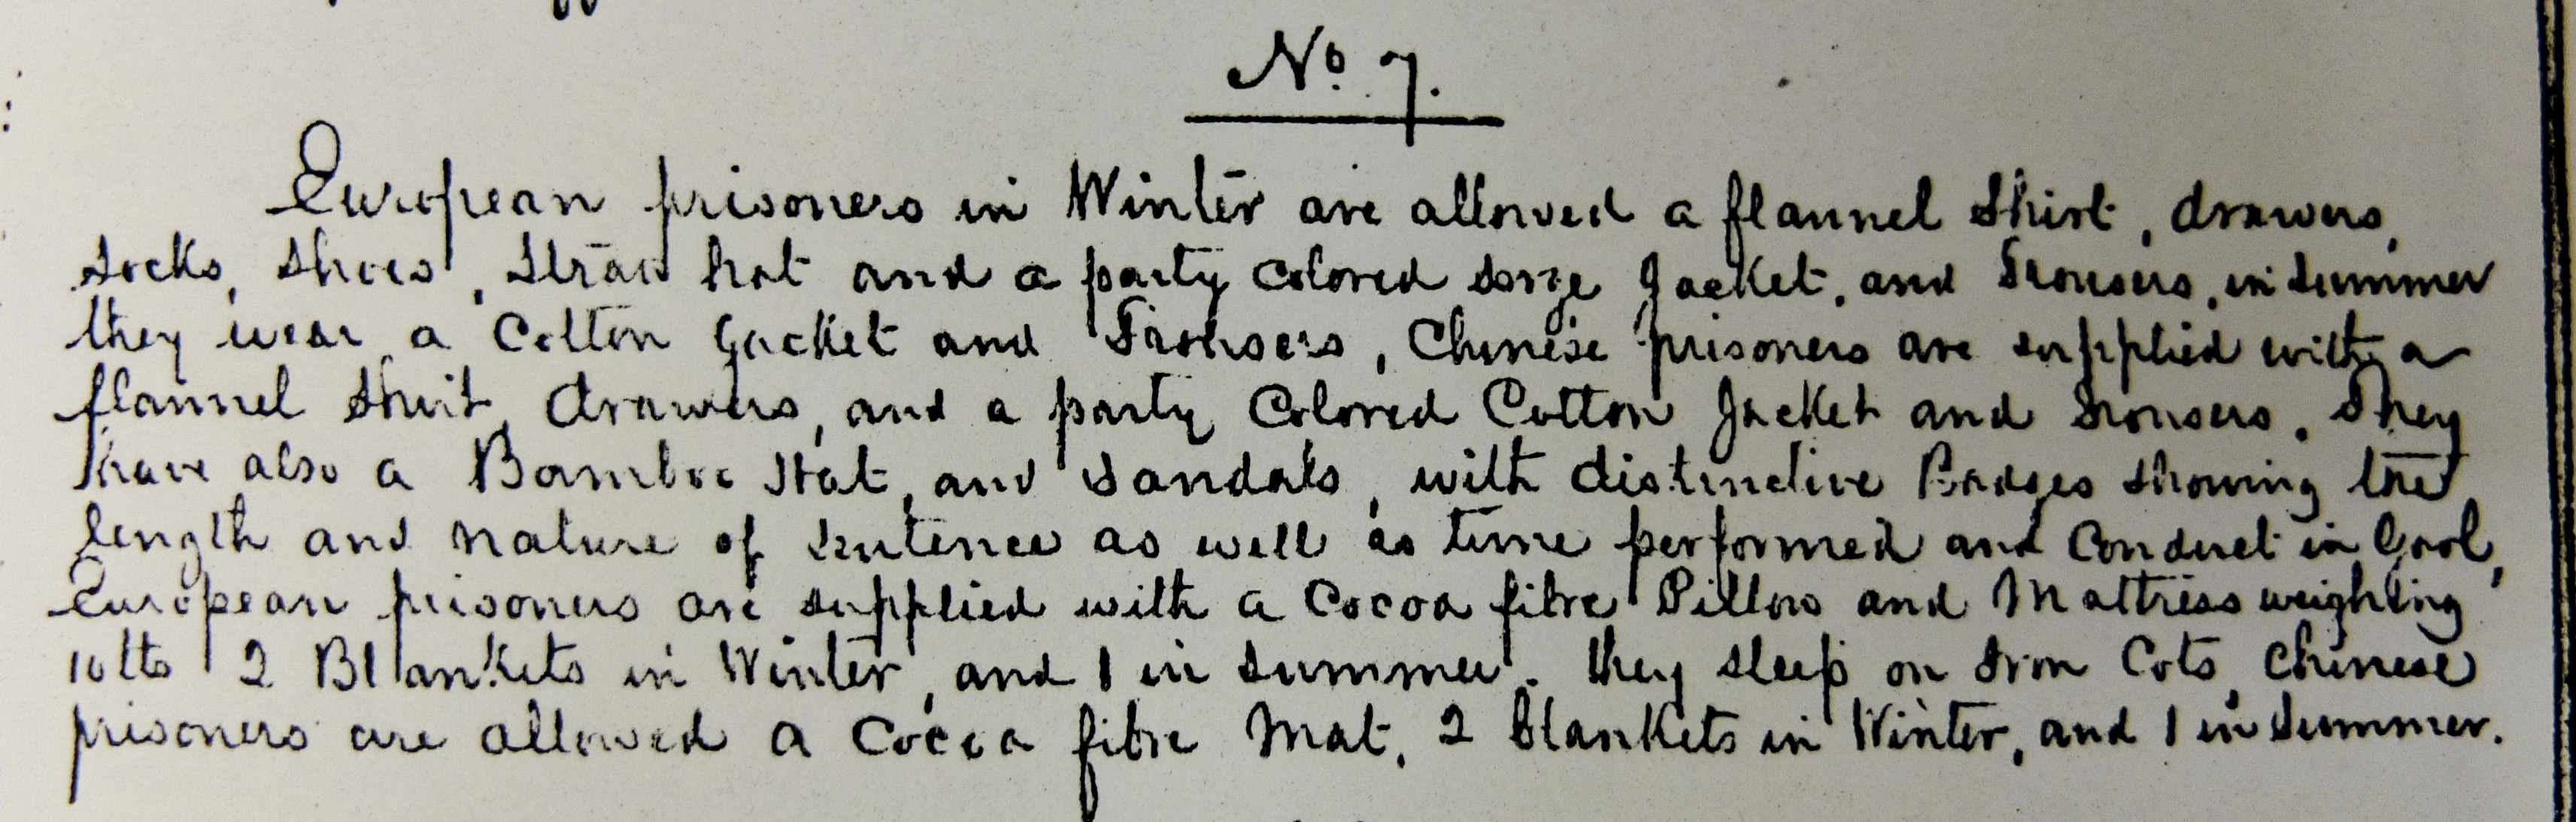 No. 7.
European prisoners in Winter are allowed a flannel Shirt, drawers,
Socks, Shoes, Straw hat and a party colored serge Jacket, and Trousers, in Summer
they wear a Cotton Jacket and Trousers, Chinese prisoners are supplied with a
flannel Shirt, drawers, and a party Colored Cotton Jacket and Trousers. They
have also a Bamboo Hat, and Sandals, with distinctive Badges showing the
length and nature of sentence as well as time performed and Conduct in Gaol,
European prisoners are supplied with a Cocoa fibre Pillow and Mattress weighing
10 lbs 2 Blankets in Winter, and 1 in Summer. They sleep on Iron Cots, Chinese
prisoners are allowed a Cocoa fibre Mat, 2 blankets in Winter, and 1 in Summer.